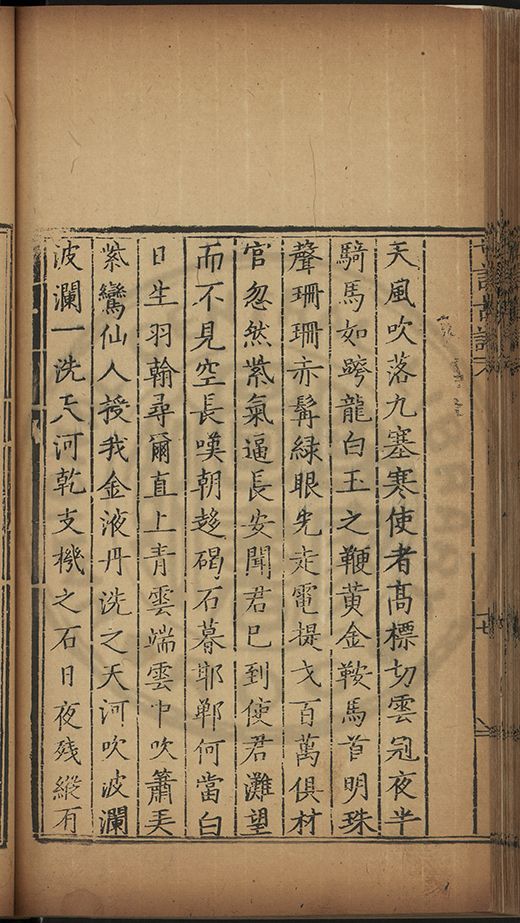 天風吹落九塞寒使者高標切雲冠夜半
騎馬如跨龍白玉之鞭黃金鞍馬首明珠
聲珊珊赤髯綠眼先走電提戈百萬俱材
官忽然紫氣逼長安聞君已到使君灘望
而不見空長嘆朝趍碣石暮邯鄲何當白
日生羽翰尋爾直上青雲端雲中吹簫弄
紫鸞仙人授我金液丹洗之天河吹波瀾
波瀾一洗天河乾支機之石日夜殘縱有